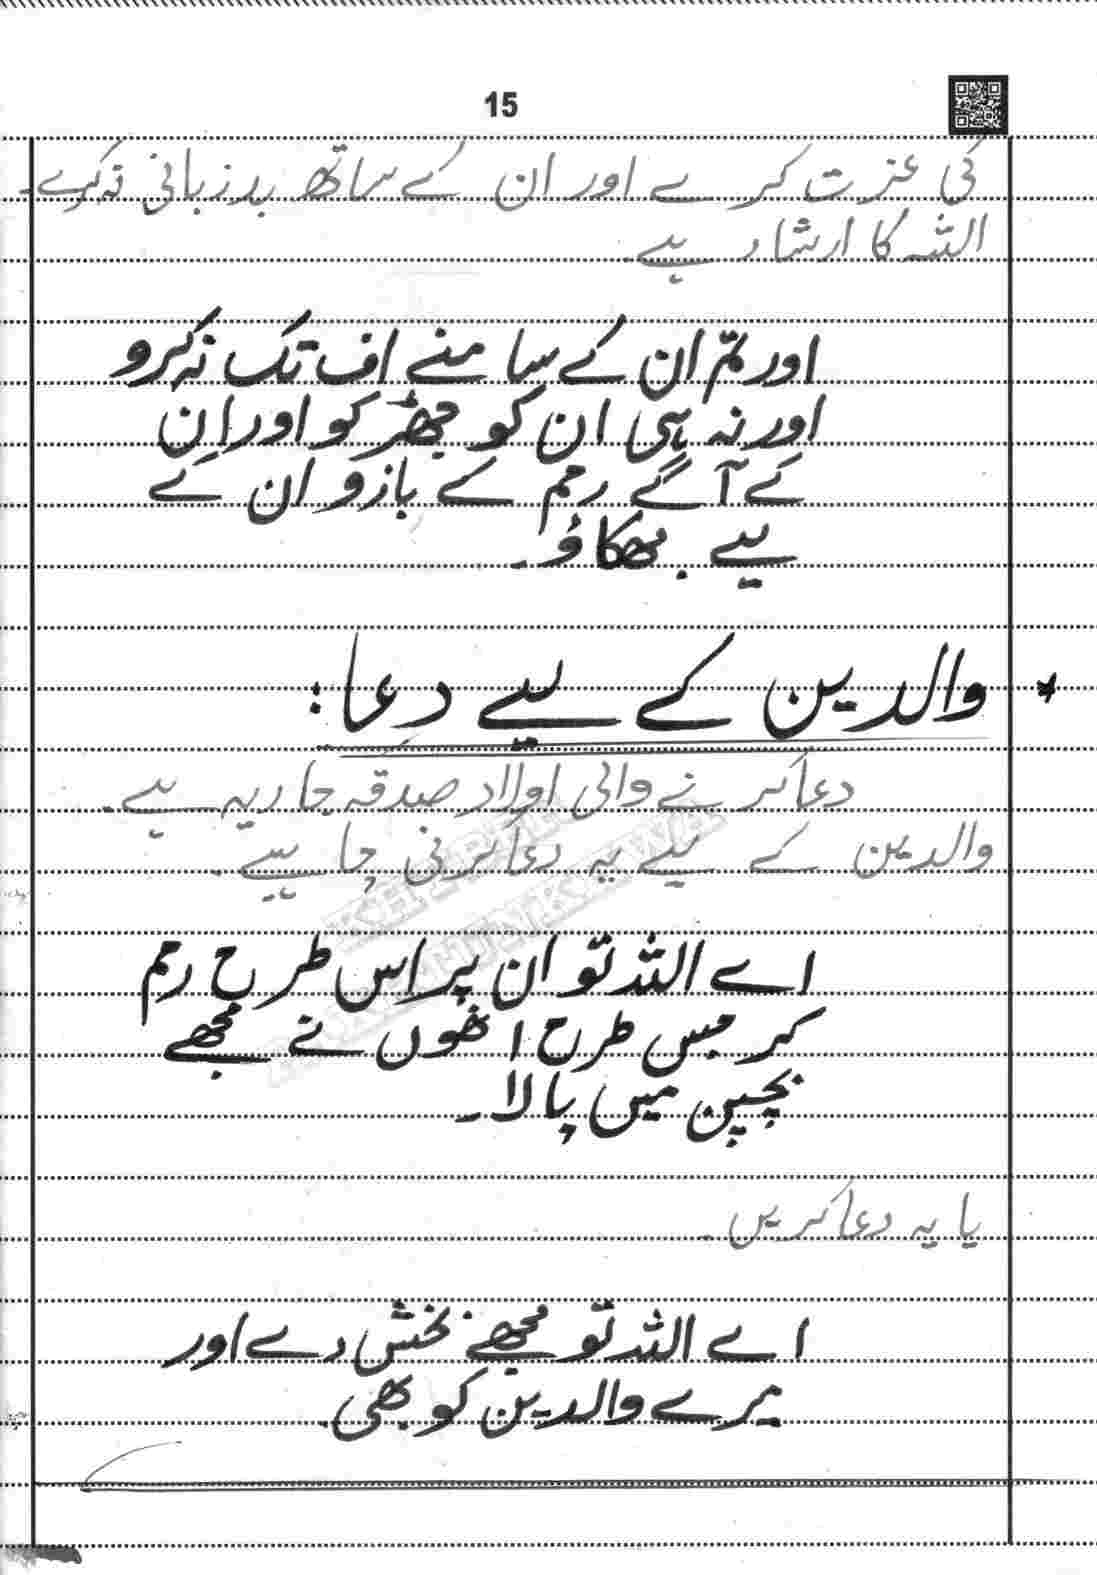 15
کی عزت کرے اور ان کے ساتھ بدزبانی نہ کرے۔
اللہ کا ارشاد ہے
اور تم ان کے سامنے اف تک نہ کرو
اور نہ ہی ان کو جھڑکو اور اِن
کے آگے رحم کے بازو ان کے
لیے جھکاؤ۔
* والدین کے لیے دعا:
دعا کرنے والی اولاد صدقہ جاریہ ہے۔
والدین کے لیے یہ دعا کرنی چاہیے۔
KHYBER
PAKHTUNKHWA
اے اللہ تو ان پر اس طرح رحم
کر جس طرح انھوں نے مجھے
بچپن میں پالا۔
یا یہ دعا کریں۔
اے اللہ تو مجھے بخش دے اور
میرے والدین کو بھی۔